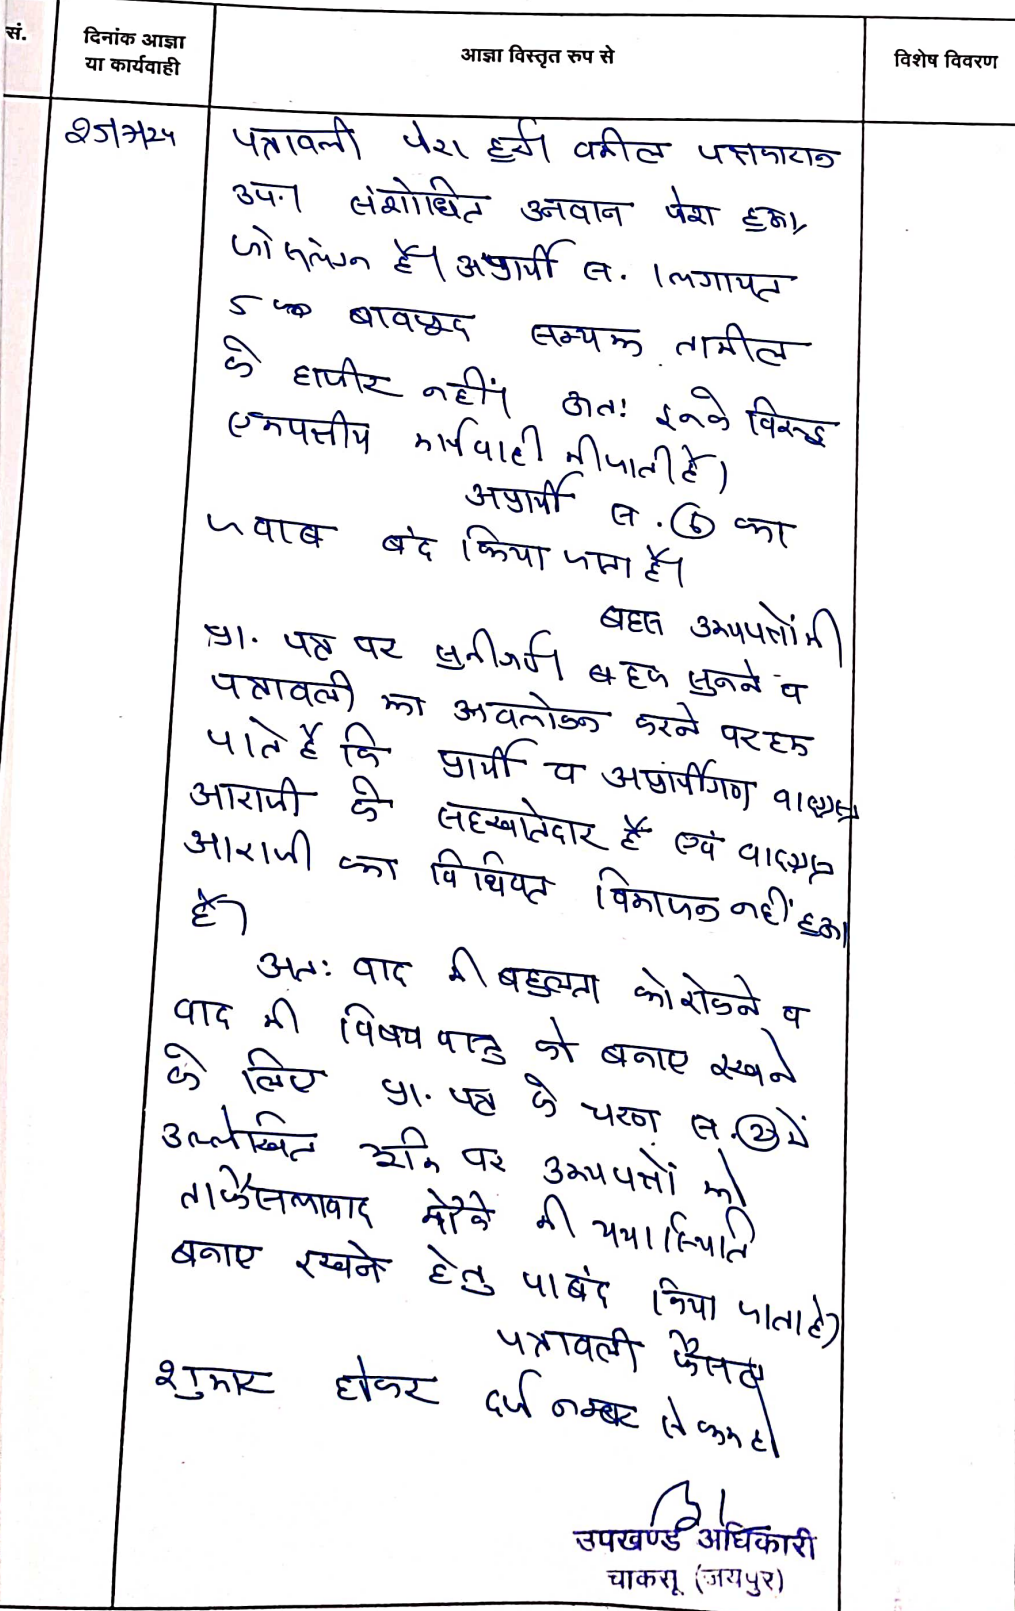 सं.
दिनांक आज्ञा
या कार्यवाही
आज्ञा विस्तृत रुप से
विशेष विवरण
पत्रावली पेश हुई। वकील पक्षकारान
उप.। संशोधित उनवान पेश हुआ
जो संलग्न है। अप्रार्थी स. 1 लगायत
5 बावजूद सम्यक तामील
के हाजीर नहीं। अतः इनके विरूद्ध
एकपक्षीय कार्यवाही की जाती है।
अप्रार्थी स. 6 का
जवाब बंद किया जाता है।
बहस उभयपक्षों की
प्रा. पत्र पर सुनी गई। बहस सुनने व
पत्रावली का अवलोकन करने पर हम
पाते है कि प्रार्थी व अप्रार्थीगण वादग्रस्त
आराजी के सहखातेदार है एवं वादग्रस्त
आराजी का विधिवत विभाजन नहीं हुआ
है।
अतः वाद की बहुलता को रोकने व
वाद की विषय वस्तु को बनाए रखने
के लिए प्रा. पत्र के चरण स. 2 में
उल्लेखित भूमि पर उभयपक्षों को
ताफैसलावाद मौके की यथास्थिति
बनाए रखने हेतु पाबंद किया जाता है।
पत्रावली फैसल
शुमार होकर दर्ज नम्बर से कम हो
उपखण्ड अधिकारी
चाकसू (जयपुर)